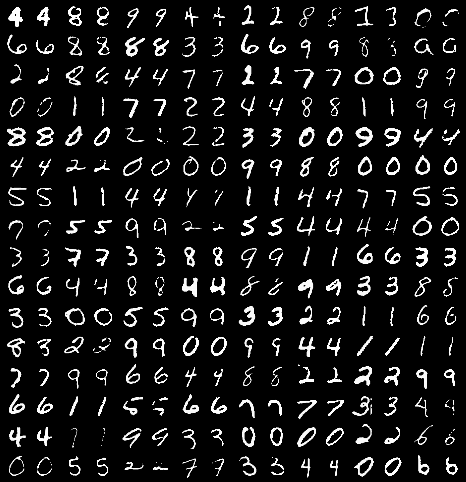 4 4 8 8 9 9 4 4 2 2 8 8 1 3 0 0
6 6 8 8 8 8 3 3 6 6 9 9 8 0 0
2 2 8 8 4 4 7 7 2 2 7 7 0 0 9 9
0 0 1 1 7 7 2 2 4 4 8 8 1 1 9 9
8 8 0 0 2 2 2 2 3 3 0 0 9 9 4 4
4 4 2 2 0 0 0 0 9 9 8 8 0 0 0 0
5 5 1 1 4 4 1 1 4 4 7 7 5 5
7 5 5 9 9 2 2 5 5 4 4 4 4 0 0
3 3 7 7 3 3 8 8 9 9 1 1 6 6 3 3
6 6 4 4 8 8 4 4 8 8 9 9 3 3 8 8
3 3 0 0 5 5 9 9 3 3 2 2 1 1 6 6
8 3 2 2 9 9 0 0 9 9 4 4 1 1 1 1
7 7 9 9 6 6 4 9 8 8 2 2 2 2 9 9
6 6 1 1 5 5 6 6 7 7 7 7 3 3 4 4
4 4 9 9 3 3 0 0 0 0 2 2 6 6
0 0 5 5 2 2 7 7 3 3 4 4 0 0 6 6